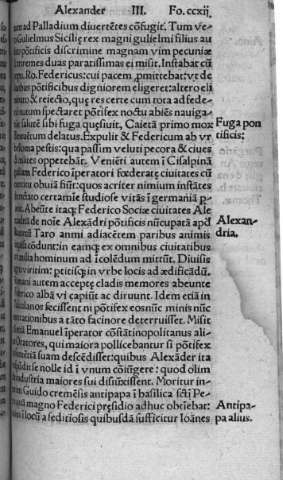 Alexander III. Fo.ccxij
ad Palladium diuertētes cōfugit. Tum ve-
Gulielmus Sicilię rex magni gulielmi filius au
pōtificis discrimine magnam vim pecuniæ
duas paratissimas ei misit. Instabat cū
Ro. Federicus: cui pacem pmittebat: vt de
pōtificibus digniorem eligeret: altero eli
& reiecto, quę res certe cum tota ad fede-
spectaret pōtifex noctu abiēs nauiga
salutē sibi fuga quęsiuit, Caietā primo mox
delatus. Expulit & Federicum ab vr
pestis: qua passim veluti pecora & ciues
milites oppetebāt. Veniēti autem ī Cisalpinā
Federico īperatori fœderatę ciuitates cū
obuiā fiūt: quos acriter nimium instātes
certamīe studiose vitās ī germaniā p
Abeūte itaq; Federico Sociæ ciuitates Ale
de noīe Alexādri pōtificis nūcupatā apd
Taro amni adiacētem paribus animis
cōdunt: in eamq; ex omnibus ciuitatibus
hominum ad īcolēdum mittūt. Diuisis
viritim: petitisq; in vrbe locis ad ædificādū.
autem acceptę cladis memores abeunte
albā vi capiūt ac diruunt. Idem etiā in
fecissent ni pōtifex eosnūc minis nūc
a tāto facinore deterruisset. Misit
Emanuel īperator cōstātinopolitanus ali-
Oratores, qui maiora pollicebantur si pōtifex
suam descēdisset: quibus Alexāder ita
se nolle id ī vnum cōiūgere: quod olim
industria maiores sui disiūxissent. Moritur in-
Guido cremēsis antipapa ī basilica scti Pe-
magno Federici pręsidio adhuc obtīebat:
ī locū a seditiosis quibusdā sufficitur Ioānes
Fuga pon
tificis;
Alexan-
dria.
Antipa-
pa alius.